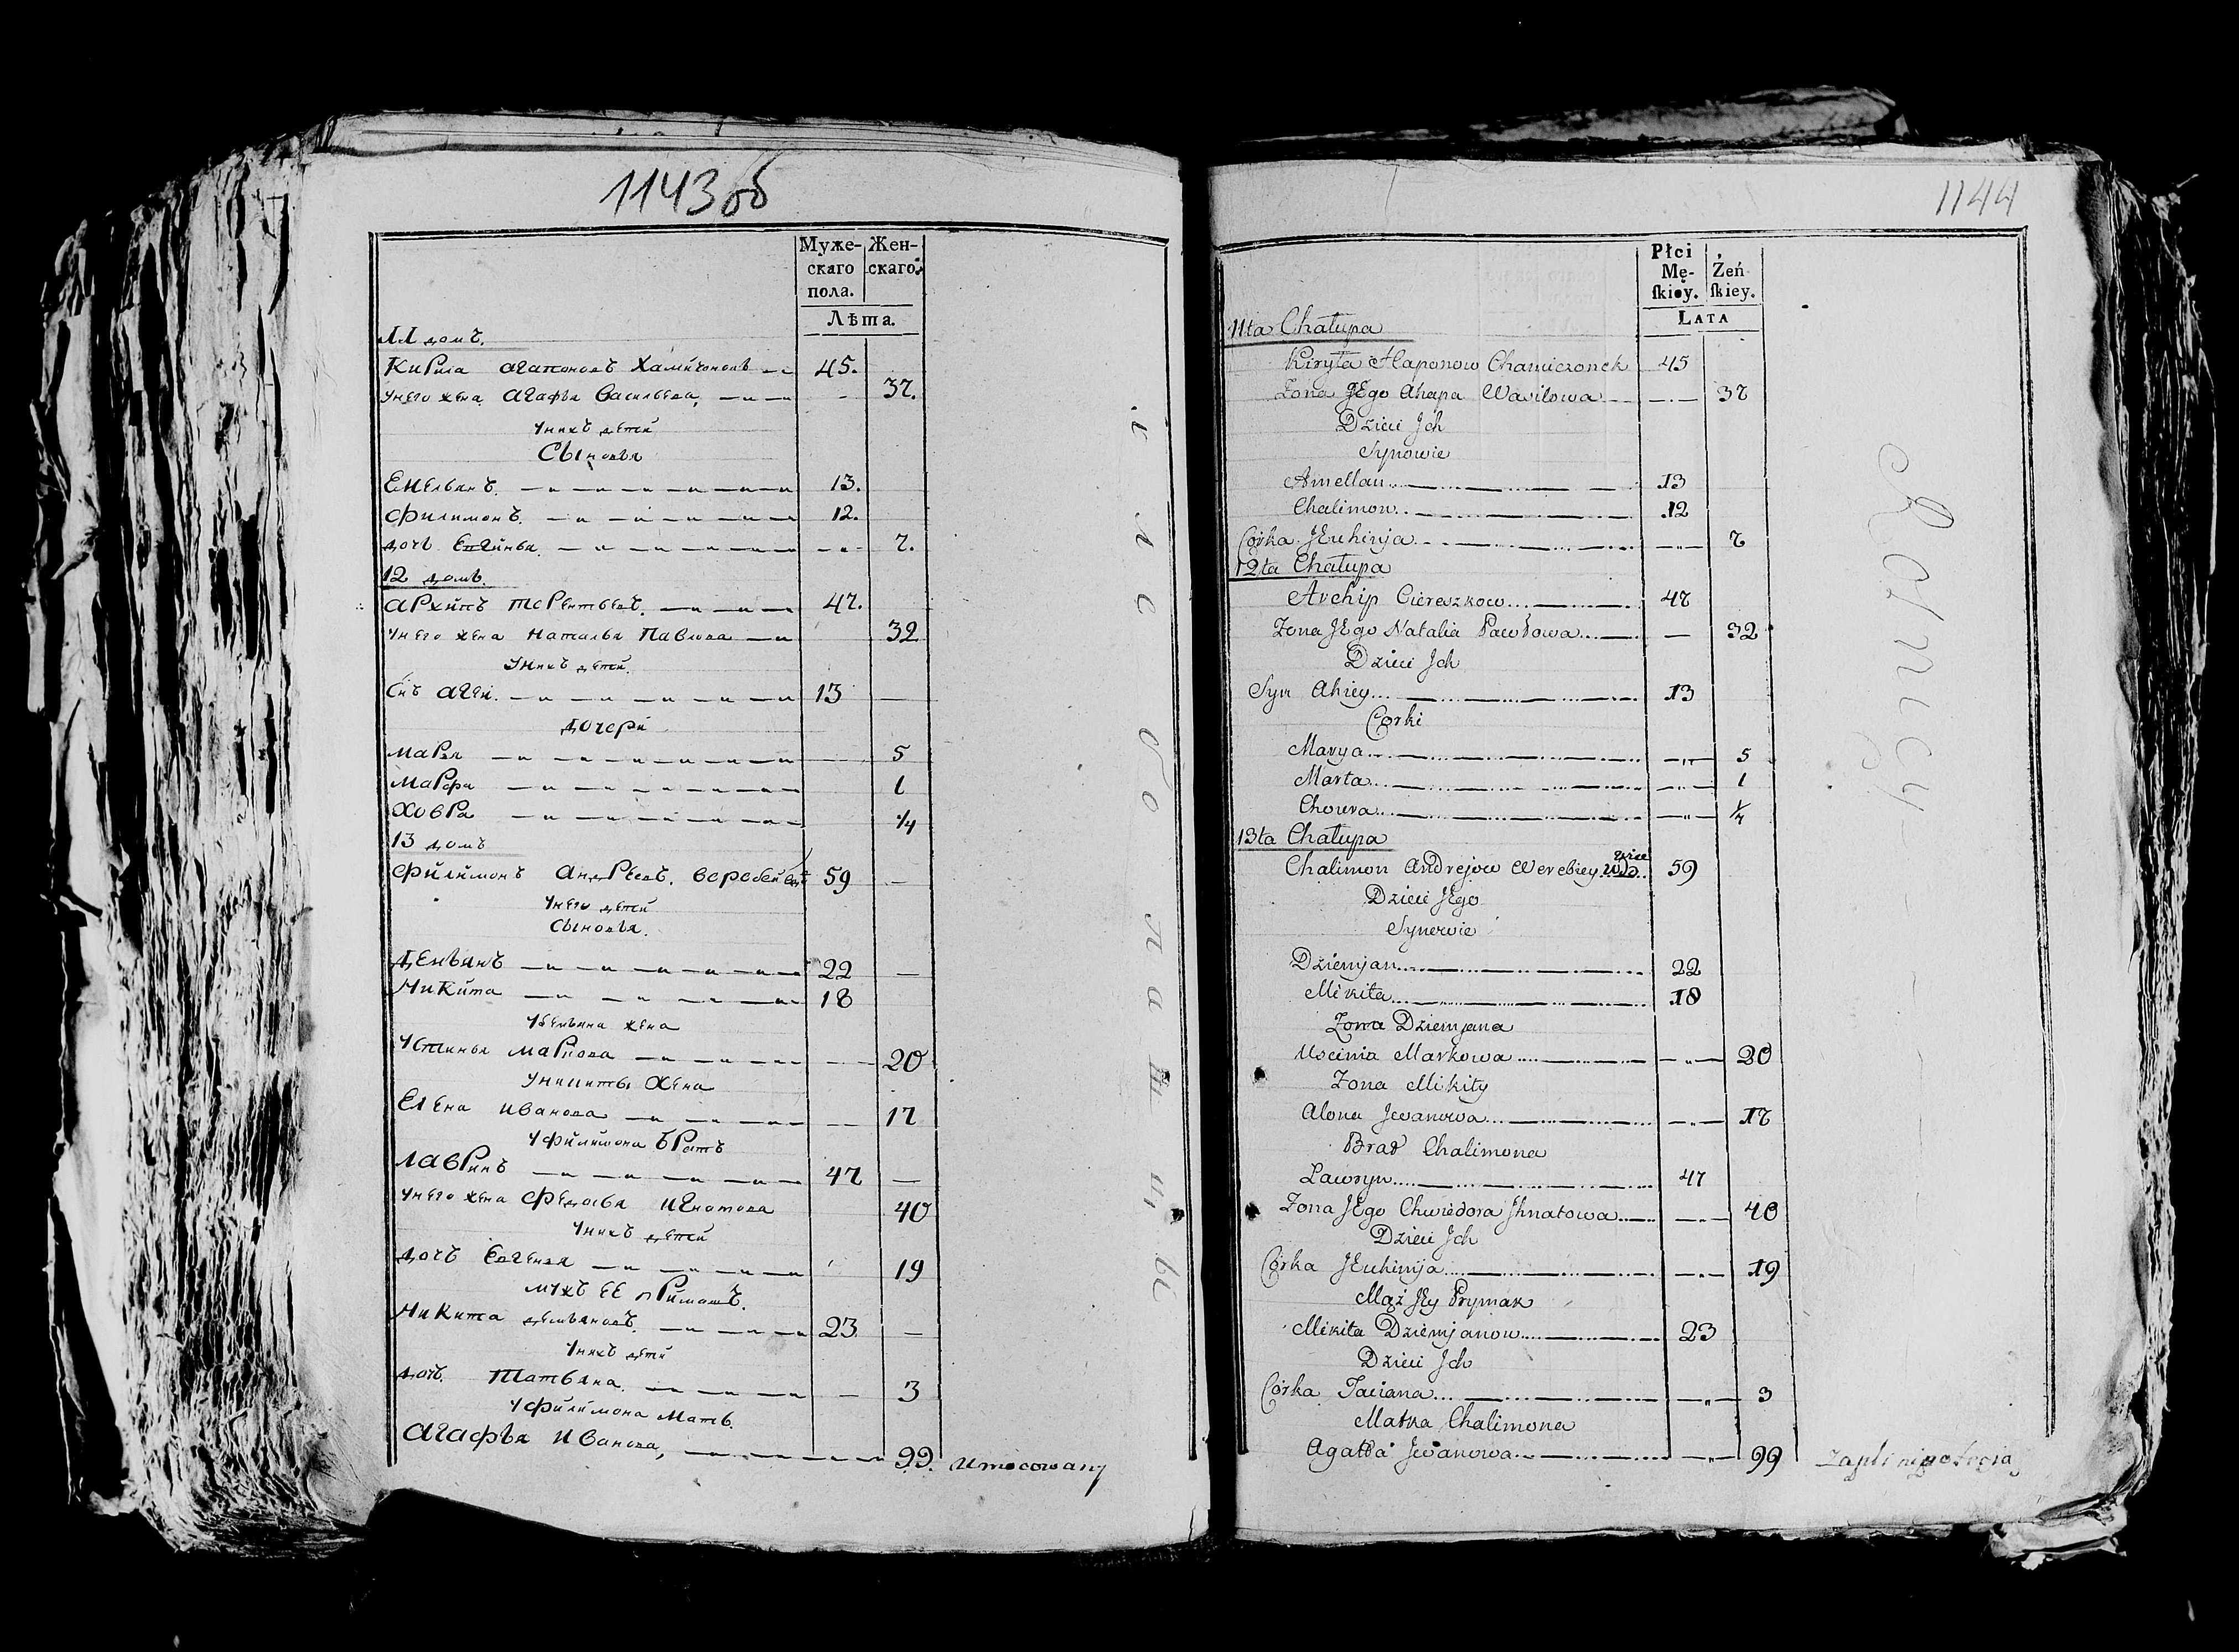 1143об
Муже-
скаго
пола.
Жен-
скаго.
Лѣта.
11 домъ.
Кирила Агапоновъ Хамичонокъ 45.
У него жена Агафья Васильева, 37.
У нихъ дети
Сыновья
Емельянъ. 13.
Филимонъ. 12.
дочь Евгинья. 7.
12 домъ.
Архипъ Терентьевъ. 47.
У него жена Наталья Павлова 32
У нихъ дети.
Сиъ Агеи. 13
дочери
Марья 5
Марфа 1
Ховра 1/4
13 домъ
Филимонъ Андреевъ. 59
У него дети
Сыновья.
Демьянъ 22
Никита 18
У Демьяна жена
Устинья Маркова 20
У Никиты жена
Елена Иванова 17
У Филимона братъ
Лавринъ 47
У него жена Федосья Игнатова 40
У нихъ дети
дочь Евгенья 19
мужъ ее примакъ.
Никита Демьяновъ. 23
У нихъ дети
дочь. Татьяна. 3
У Филимона мать.
Агафья Иванова, 99. Umocowany
1144
Płci
Mę-
skiey.
Żeń
skiey.
LATA
11ta Chałupa
Kiryła Haponow Chamiczonek 45
Zona JEgo Ahapa Wasilowa 37
Dzieci Jch
Synowie
Amellan 13
Chalimon 12
Corka JEuhinja 7
12ta Chałupa
Archip Ciereszkow 47
Zona JEgo Natalia Pawłowa 32
Dzieci Jch
Syn Ahiey 13
Corki
Marya 5
Marta 1
Chowra 1/4
13ta Chałupa
Chalimon Andrejow Werebiey 59
Dzieci JEgo
Synowie
Dziemjan 22
Mikita 18
Zona Dziemjana
Uscinia Markowa 20
Zona Mikity
Alona Jwanowa 17
Brat Chalimona
Ławryn 47
Zona JEgo Chwiedora Jhnatowa 40
Dzieci Jch
Corka JEuhinija 19
Mąż JEy Prymak
Mikita Dziemjanow 23
Dzieci Jch
Corka Taciana 3
Matka Chalimona
Agatta Jwanowa 99